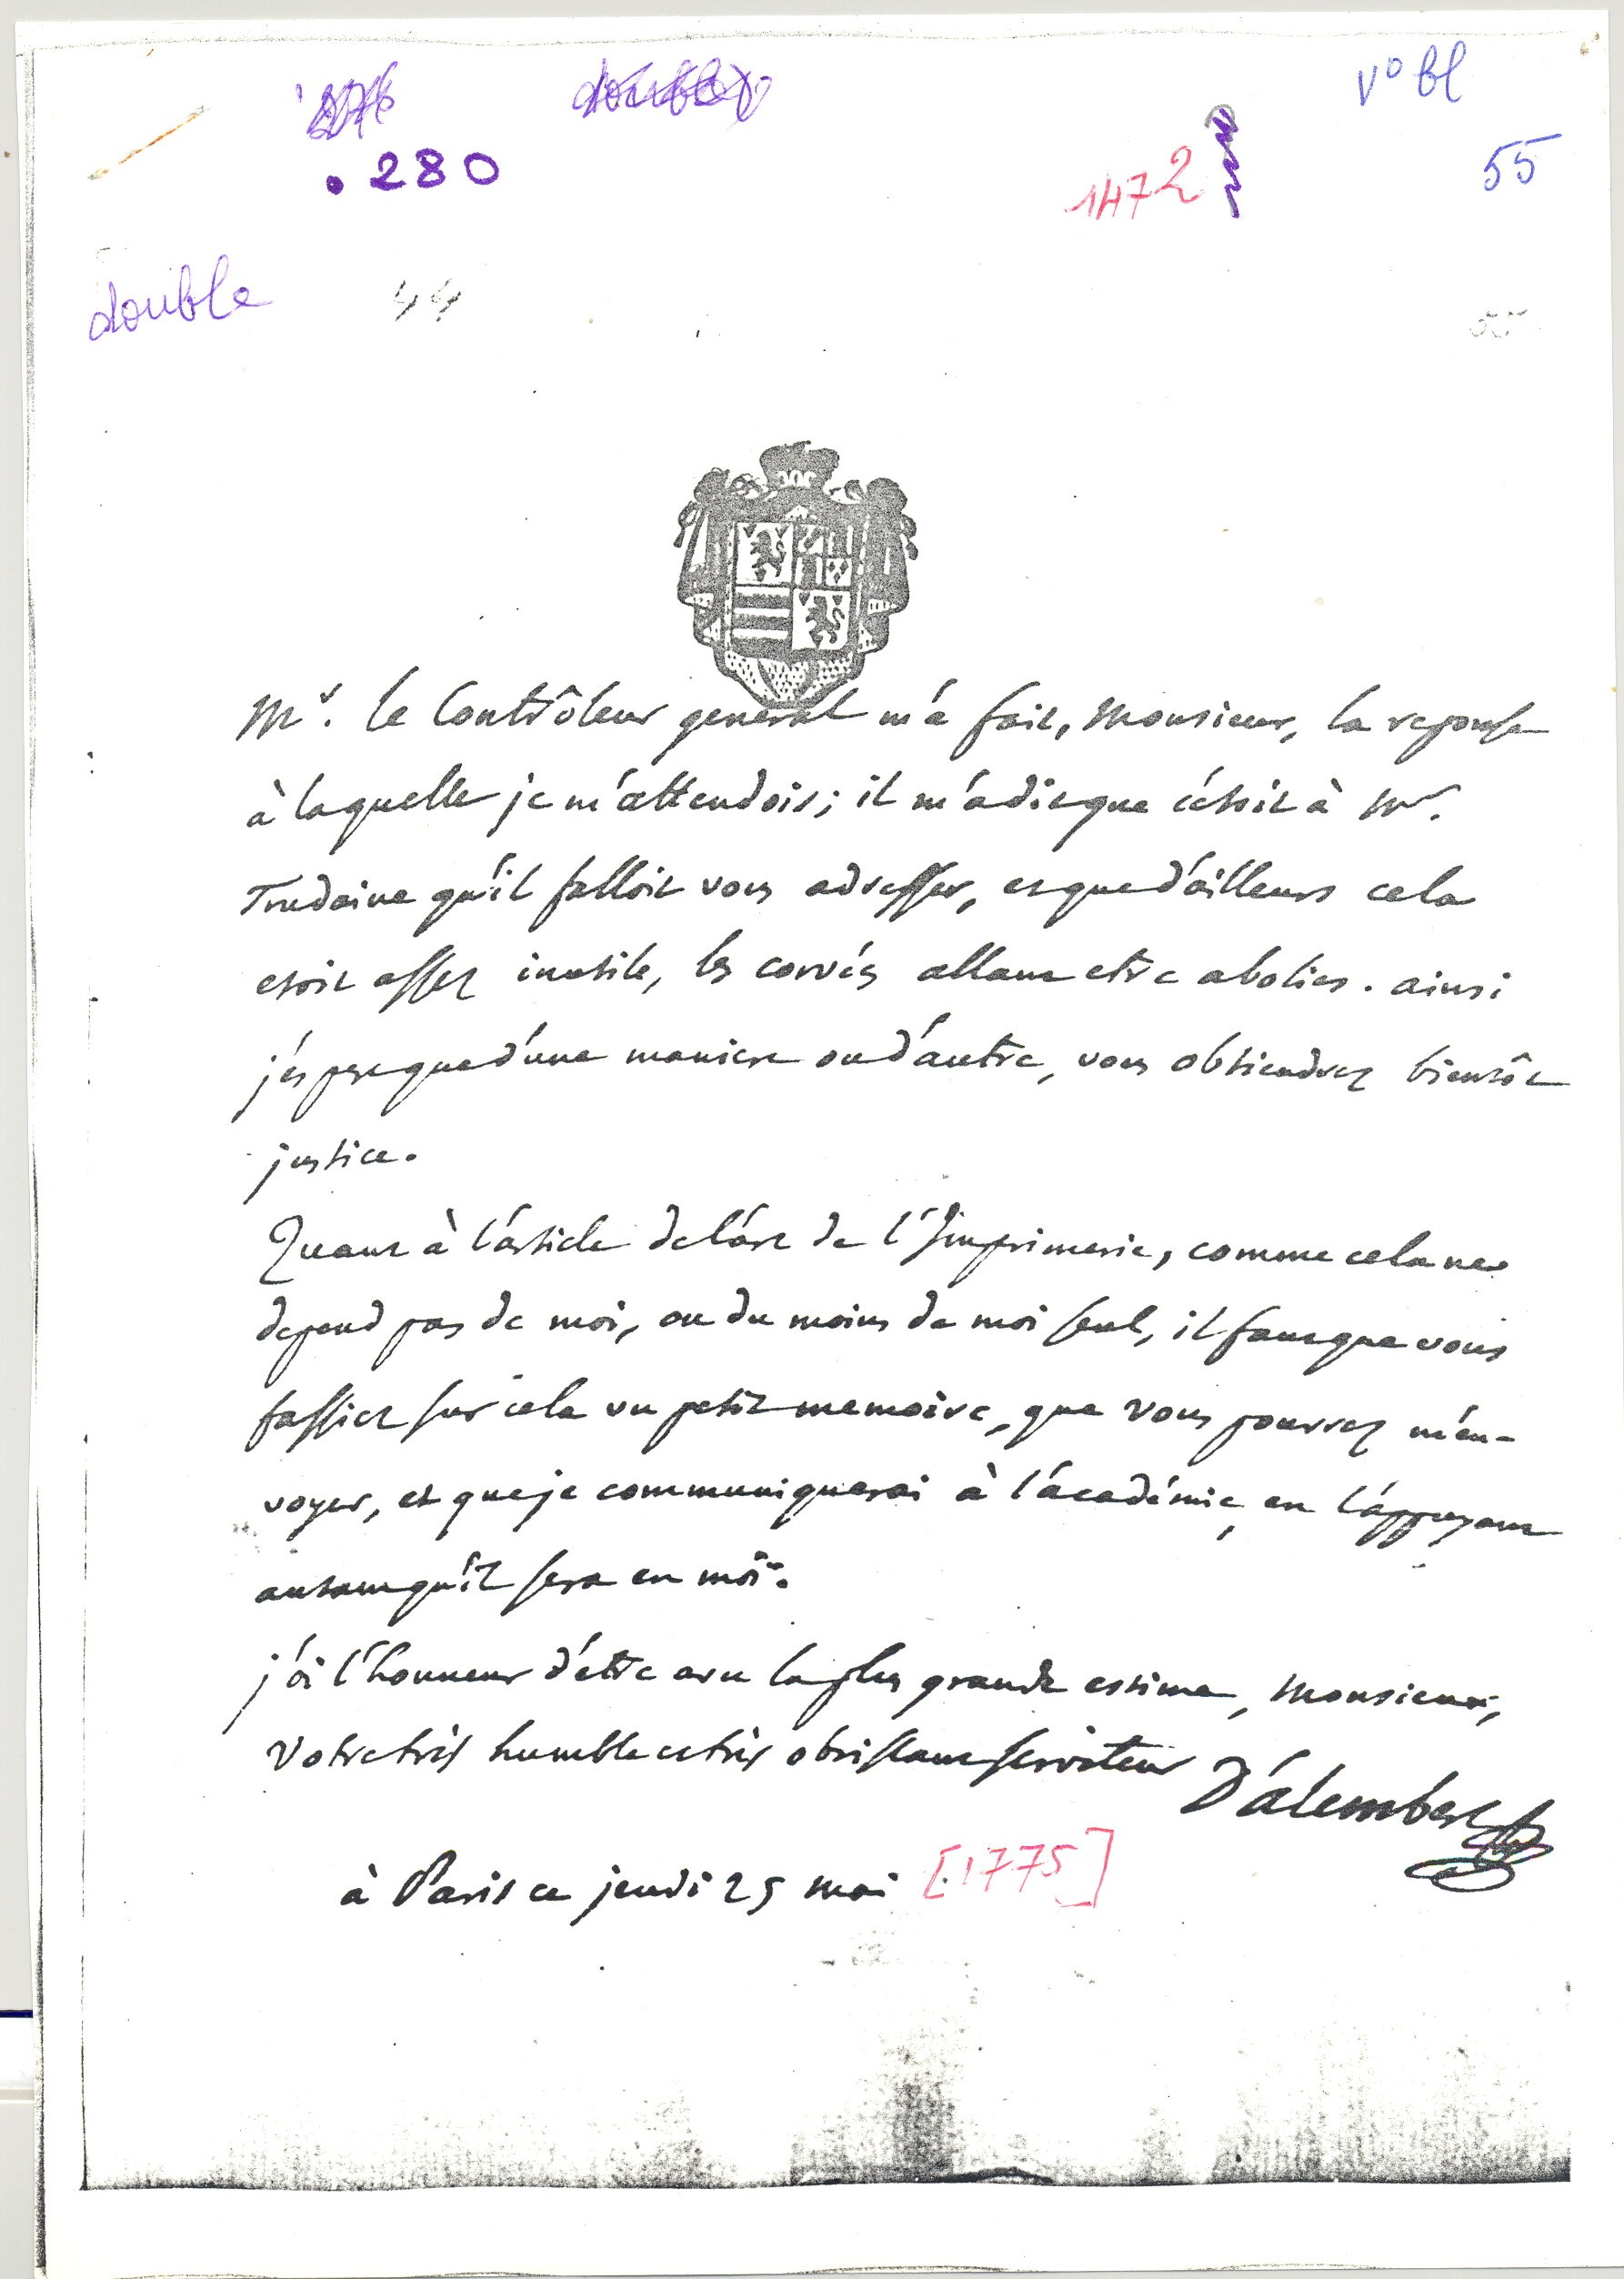 v° bl
.280
1472
55
double
44
55
Mr. le Contrôleur general m'a fait, Monsieur, la reponse
à laquelle je m'attendois; il m'a dit que c'étoit à Mr.
Trudaine qu'il falloit vous adresser, et que d'ailleurs cela
etoit assez inutile, les corvées allant etre abolies. ainsi
j'espere que d'une maniere ou d'autre, vous obtiendrez bientôt
justice.
Quant à l'article de l'art de l'Imprimerie, comme cela ne
depend pas de moi, ou du moins de moi seul, il faut que vous
fassiez sur cela un petit memoire, que vous pourrez m'en-
voyer, et que je communiquerai à l'académie, en l'appuyant
autant qu'il sera en moi.
j'ai l'honneur d'etre avec la plus grande estime, Monsieur,
Votre très humble et très obeissant serviteur D'alembert
à Paris ce jeudi 25 mai [1775]